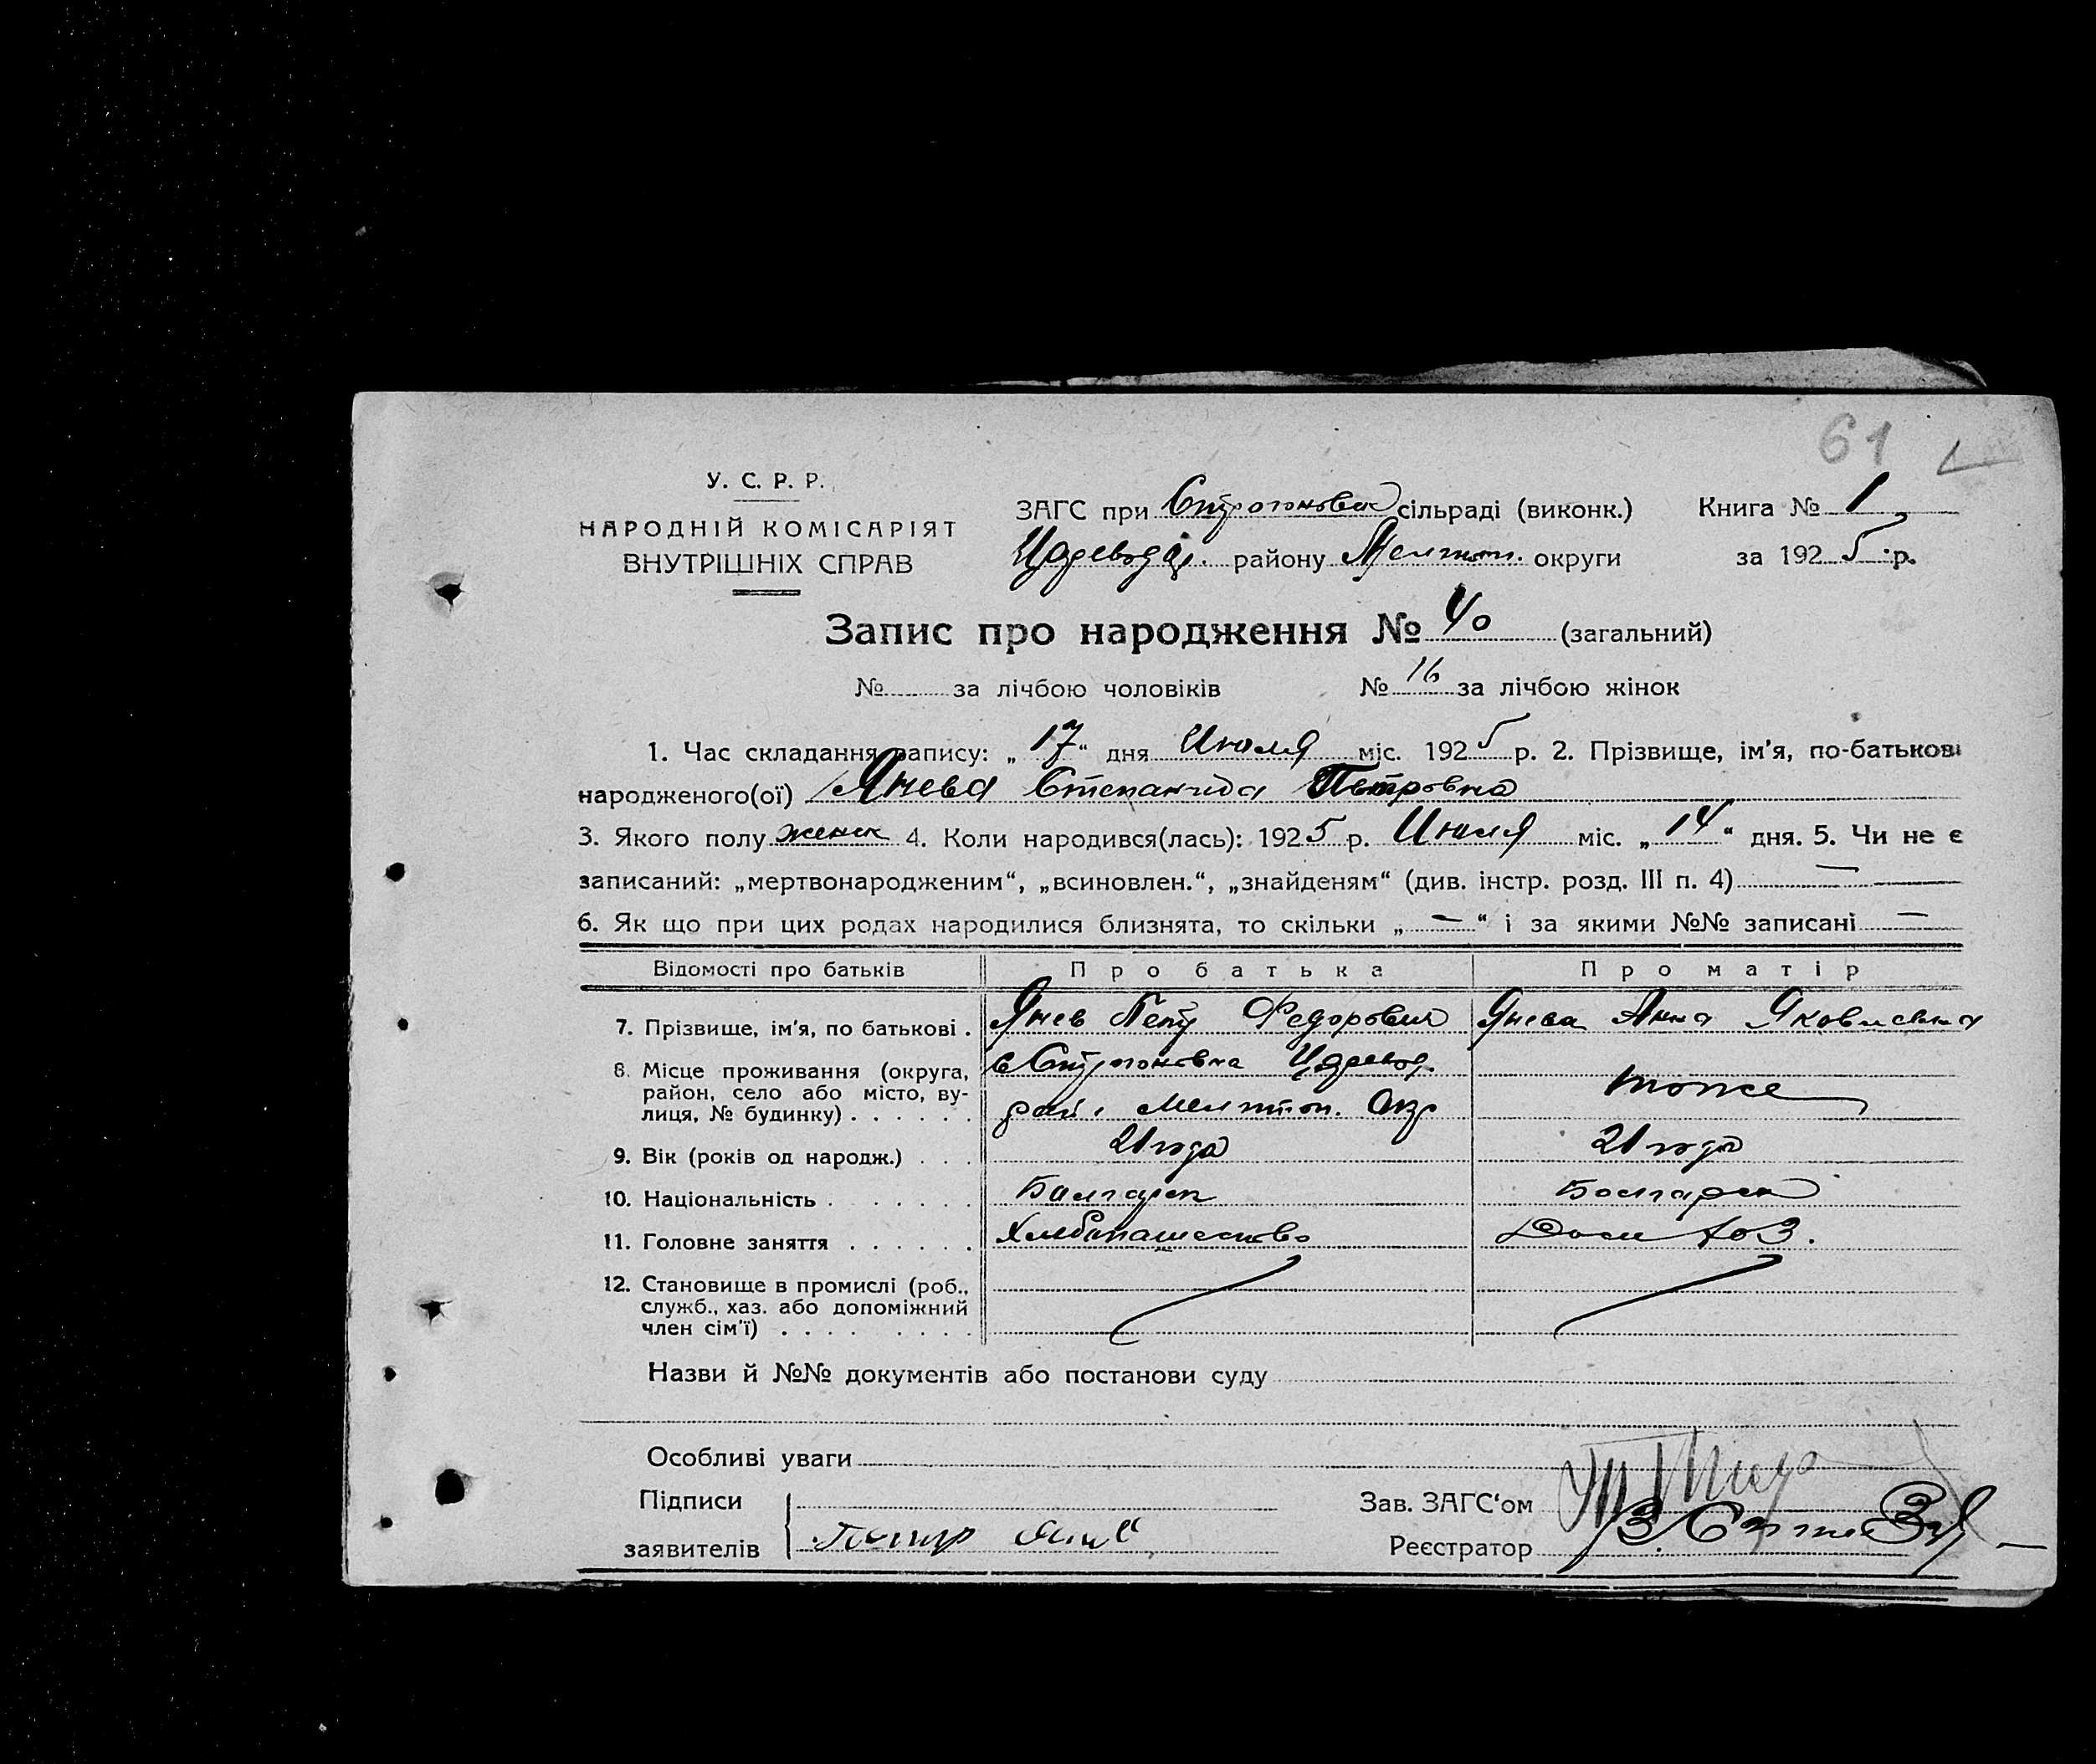 61
У. С. Р. Р.
НАРОДНІЙ КОМІСАРІЯТ
ВНУТРІШНІХ СПРАВ
ЗАГС при Строгоновка сільраді (виконк.) Книга № 1
району Мелитоп. округи за 1925 р.
Запис про народження № 40 (загальний)
№ за лічбою чоловіків № 16 за лічбою жінок
1. Час складання запису: „17“ дня Июля міс. 1925 р. 2. Прізвище, ім'я, по-батькові
народженого(ої) Янева Степанида Петровна
3. Якого полу женск 4. Коли народився(лась): 1925 р. Июля міс. „14“ дня. 5. Чи не є
записаний: „мертвонародженим“, „всиновлен.“, „знайденям“ (див. інстр. розд. III п. 4) —
6. Як що при цих родах народилися близнята, то скільки „—“ і за якими №№ записані —
Відомості про батьків Про батька Про матір
7. Прізвище, ім'я, по батькові . Янев Петр Федорович Янева Анна Яковлевна
8. Місце проживання (округа, с Строгоновка
район, село або місто, ву-
лиця, № будинку) . . . . . . рай. Мелитоп. Окр тоже
9. Вік (років од народж.) . . . 21 года 21 года
10. Національність . . . . . . . Болгарск Болгарск
11. Головне заняття . . . . . . Хлебопашество Дом хоз.
12. Становище в промислі (роб.,
служб., хаз. або допоміжний
член сім'ї) . . . . . . . .
Назви й №№ документів або постанови суду
Особливі уваги
Підписи
заявителів Петр Янев
Зав. ЗАГС'ом
Реєстратор